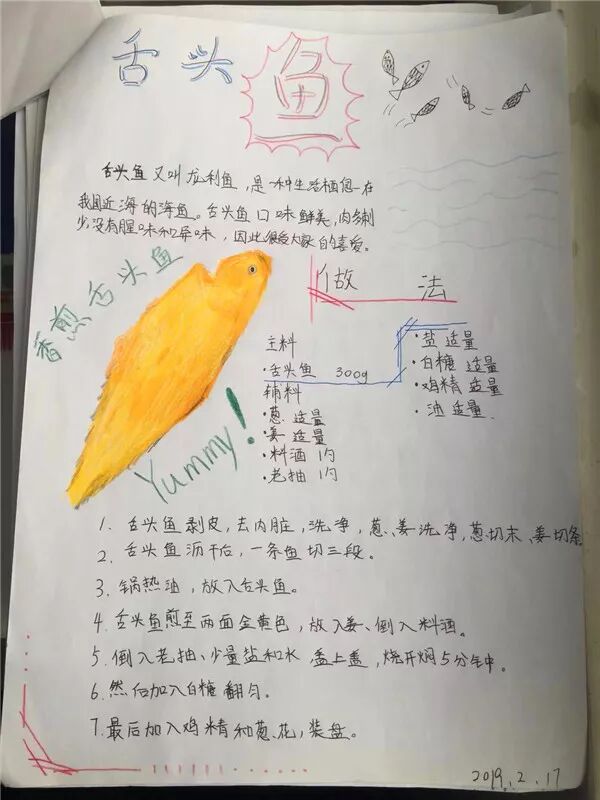 舌头鱼
舌头鱼又叫龙利鱼,是一种生活栖息在
我国近海的海鱼。舌头鱼口味鲜美,肉多刺
少,没有腥味和异味,因此很受大家的喜爱。
香煎舌头鱼
Yummy!
做法
主料
·舌头鱼 300g
辅料
·葱 适量
·姜 适量
·料酒 1勺
·老抽 1勺
·盐 适量
·白糖 适量
·鸡精 适量
·油 适量
1、舌头鱼剥皮,去内脏,洗净,葱、姜洗净,葱切末、姜切条
2、舌头鱼沥干后,一条鱼切三段。
3、锅热油,放入舌头鱼。
4、舌头鱼煎至两面金黄色,放入姜、倒入料酒。
5、倒入老抽、少量盐和水 盖上盖,烧开焖5分钟。
6、然后加入白糖翻匀。
7、最后加入鸡精和葱花,装盘。
2019.2.17